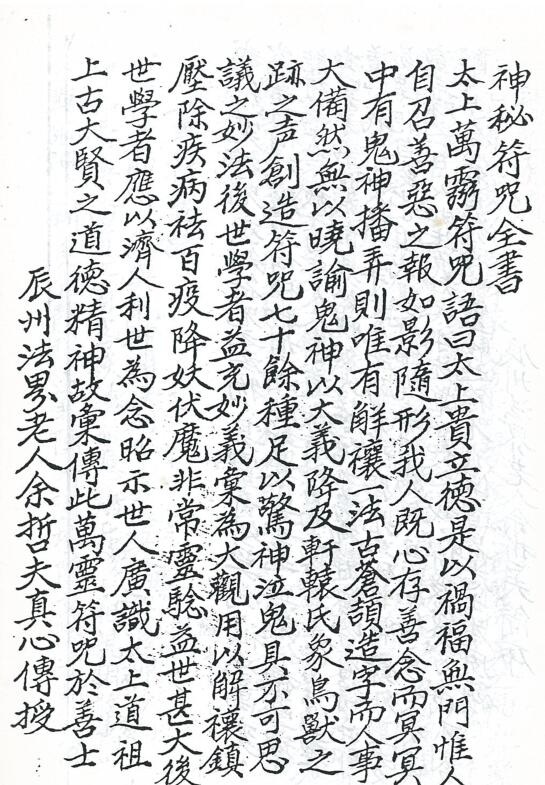 神秘符咒全書
太上萬靈符咒語曰太上貴立德是以禍福無門惟人
自召善惡之報如影隨形我人既心存善念而冥冥
中有鬼神播弄則唯有解禳一法古蒼頡造字而人事
大備然無以曉諭鬼神以大義降及軒轅氏象鳥獸之
跡之声創造符咒七十餘種足以驚神泣鬼具不可思
議之妙法後世學者益充妙義彙為大觀用以解禳鎮
壓除疾病祛百疫降妖伏魔非常靈驗益世甚大後
世學者應以濟人利世為念昭示世人廣識太上道祖
上古大賢之道德精神故彙傳此萬靈符咒於善士
辰州法界老人余哲夫真心傳授